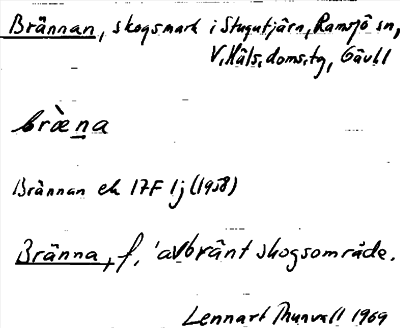 Brännan, skogsmark i Stugutjärn, Ramsjö sn,
V. Häls. doms. tg, Gävl. l
bræ̀na
Brännan ek 17F 1j (1958)
Bränna, f. 'avbränt skogsområde.
Lennart Thunvall 1969